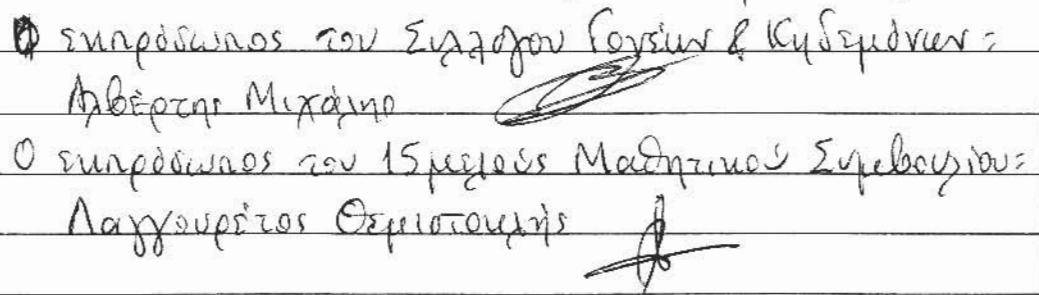 Ο εκπρόσωπος του Συλλόγου Γονέων & Κηδεμόνων:
Αλβέρτης Μιχάλης
Ο εκπρόσωπος του 15μελούς Μαθητικού Συμβουλίου:
Λαγγουρέτος Θεμιστοκλής